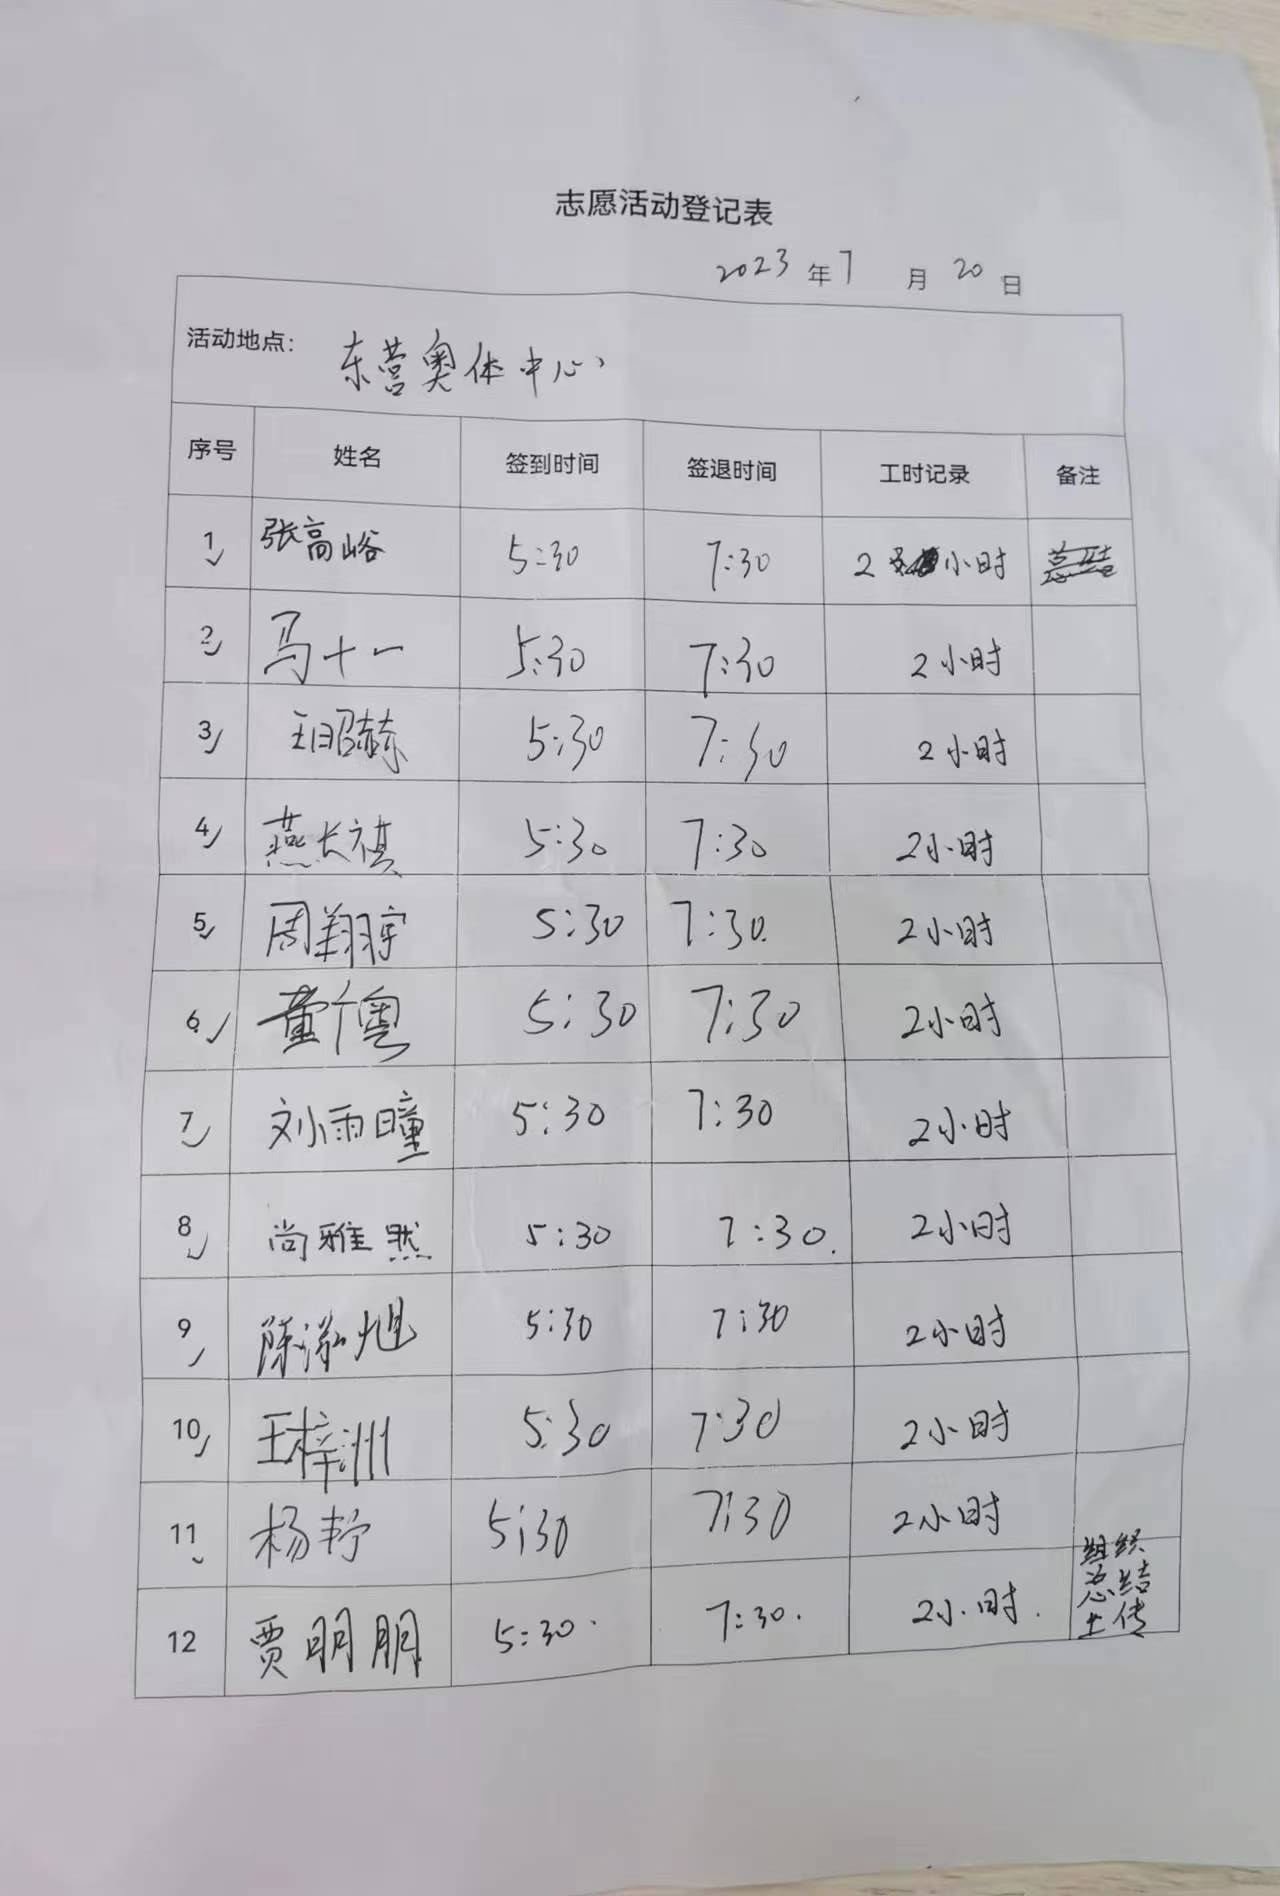 志愿活动登记表
2023年7月20日
活动地点: 东营奥体中心
序号 姓名 签到时间 签退时间 工时记录 备注
1 张高峪 5:30 7:30 2小时 总结
2 马十一 5:30 7:30 2小时
3 王昭赫 5:30 7:30 2小时
4 燕长祺 5:30 7:30 2小时
5 周翔宇 5:30 7:30. 2小时
6 董 粤 5:30 7:30 2小时
7 刘雨瞳 5:30 7:30 2小时
8 尚雅然 5:30 7:30. 2小时
9 陈泓旭 5:30 7:30 2小时
10 王梓洲 5:30 7:30 2小时
11 杨 5:30 7:30 2小时
12 贾明朋 5:30. 7:30. 2小时. 组织
总结
上传